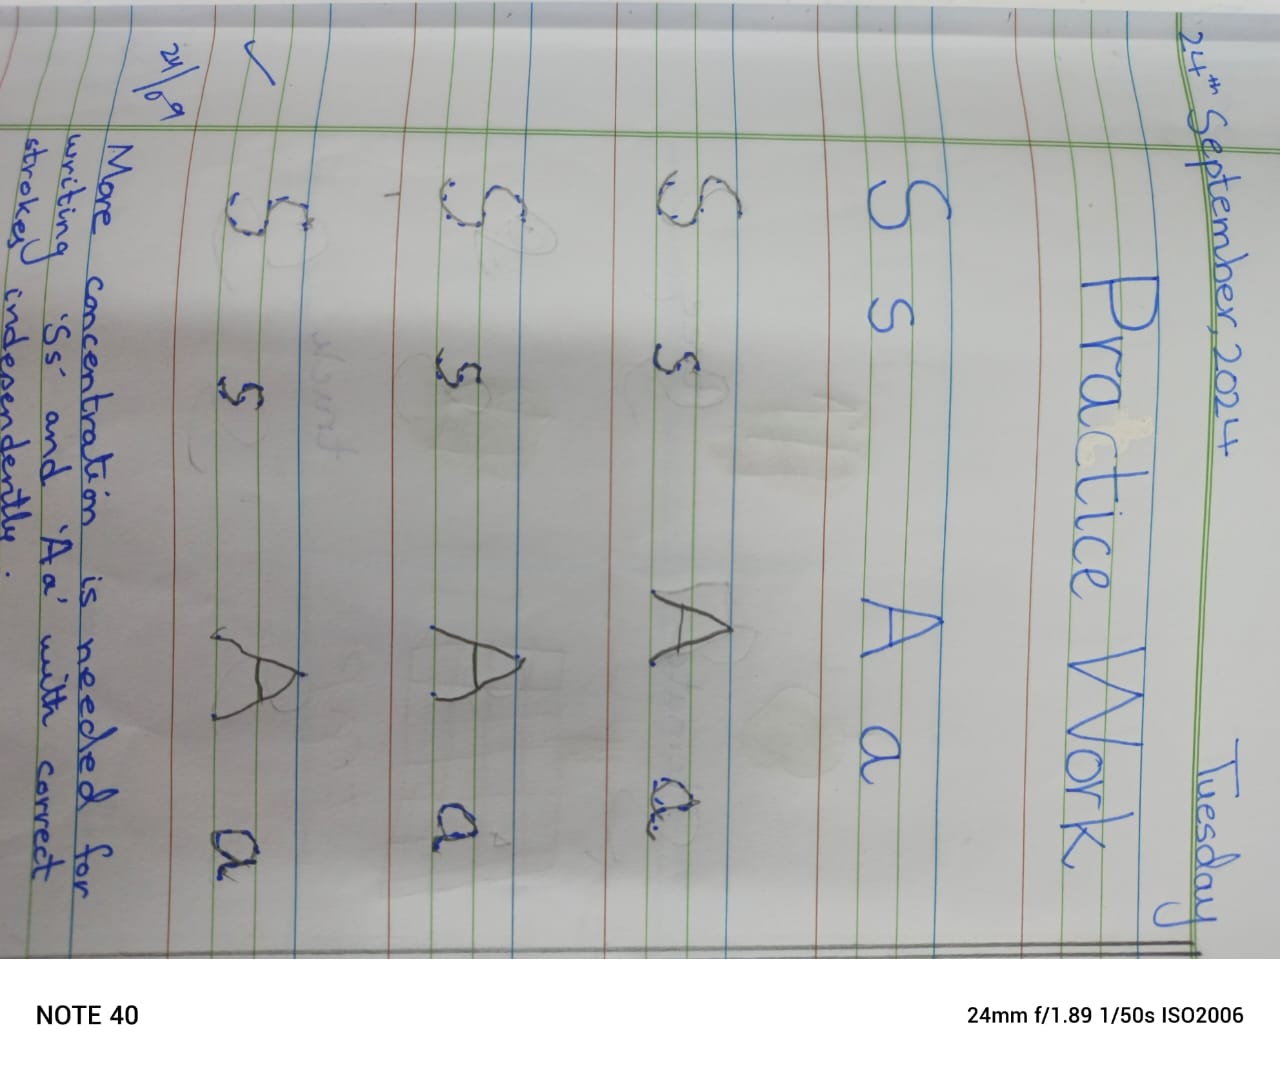 24th September, 2024 Tuesday
Practice Work
S s A a
S s A a
S s A a
S s A a
24/09
More concentration is needed for
writing 'Ss' and 'Aa' with correct
strokes independently.
NOTE 40 24mm f/1.89 1/50s ISO2006